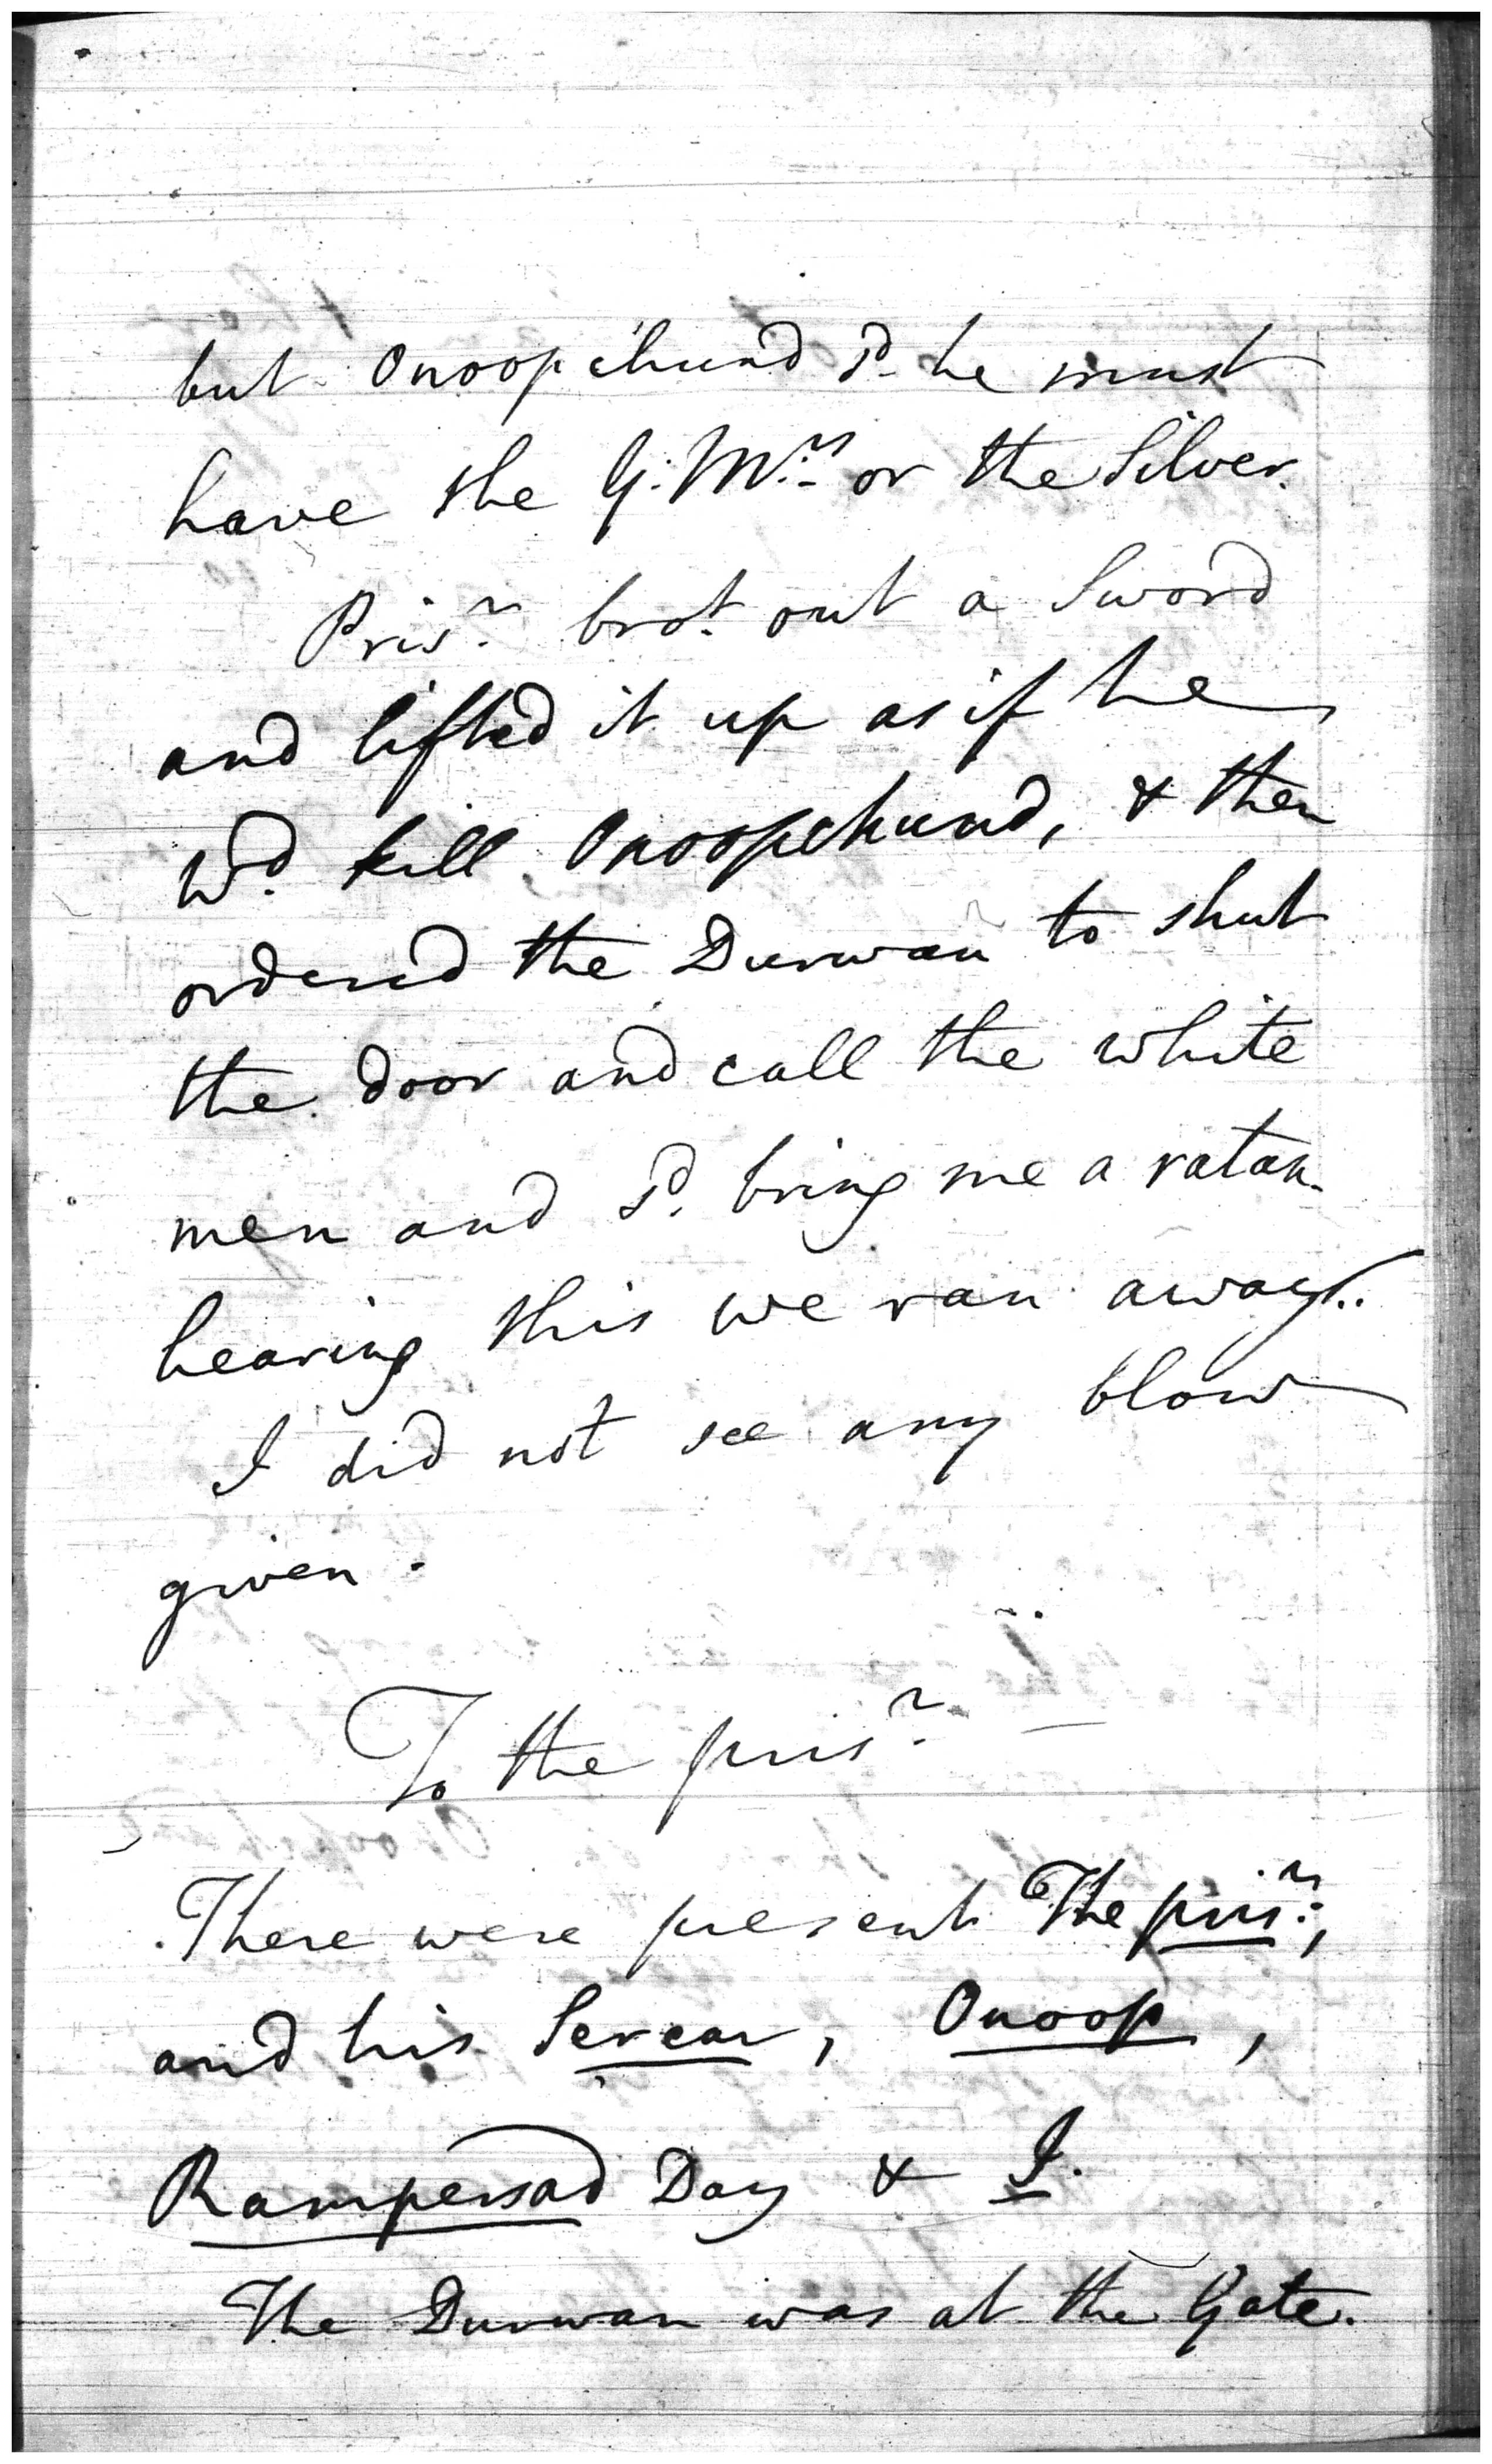 but Onoopchund sd. he must
have the G: Mrs. or the Silver.
Prisr. brot. out a Sword
and lifted it up as if he
wd. kill Onoopchund, & then
ordered the Durwan to shut
the door and call the white
men and sd. bring me a ratan.
hearing this we ran away..
I did not see any blow
given.
To the prisr. —
There were present The prisr.,
and his Sercar, Onoop,
Rampersad Day & I.
The Durwan was at the Gate.